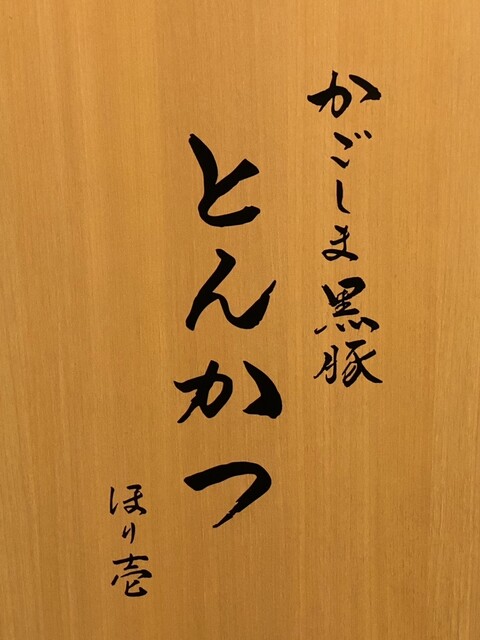 かごしま黒豚
とんかつ
ほり壱